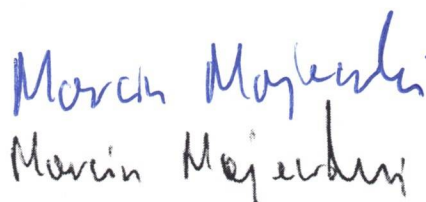 Marcin Majewski
Marcin Majewski